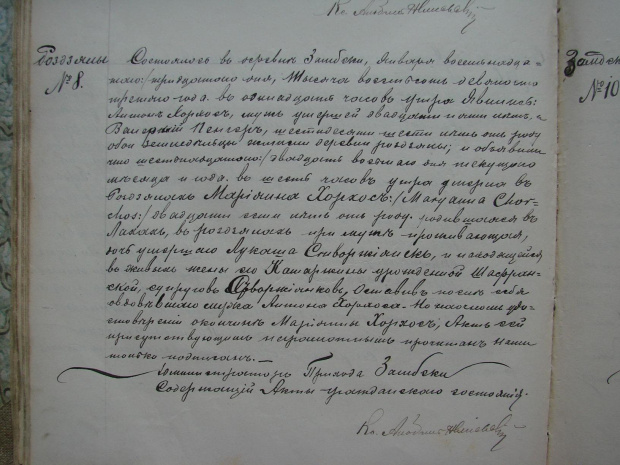 Роздзялы
№ 8.
Состоялось въ деревнѣ Замбски, Января восемнадца-
таго:/тридцатого дня, тысяча восемьсотъ девяносто
третьяго года въ одинадцать часовъ утра. Явились:
Антонъ Хорхосъ, мужъ умершей двадцати лѣтъ, и
шестидесяти шести лѣтъ отъ роду
оба земледѣльцы жители деревни роздзялы; и объявили
что шестнадцатаго:/двадцать восьмаго дня текущаго
мѣсяца и года въ шесть часовъ утра умерла въ
Роздзялахъ Маріанна Хорхосъ:/Maryanna Chor-
chos:/ двадцати семи лѣтъ отъ роду, родившаяся въ
въ роздзялахъ при мужѣ проживающая,
дочь умершаго Лукаша и находящейся
въ живыхъ жены его Катаржины урожденной Шафран-
ской, супруговъ оставивъ послѣ себя
овдовѣвшаго мужа Антона Хорхоса. По настоящемъ удо-
стовѣреніи о кончинѣ Маріанны Хорхосъ, Актъ сей
присутствующимъ неграмотнымъ прочитанъ Нами
только подписанъ.—
Администраторъ Прихода Замбски
Содержащій Акты гражданскаго состоянія.
Кс.
Замбски
№ 10
Кс.